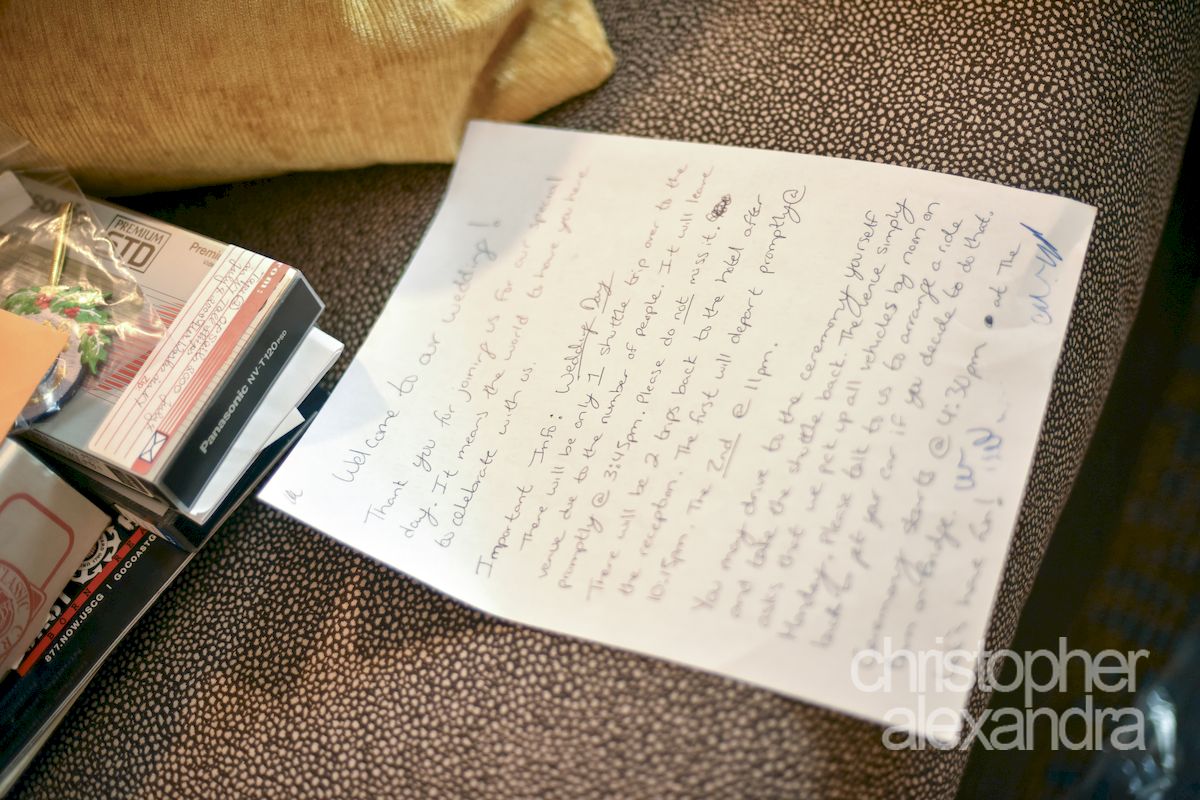 Welcome to our wedding!
Thank you for joining us for our special
day. It means the world to have you here
to celebrate with us.
Important Info: Wedding Day
There will be only 1 shuttle trip over to the
venue due to the number of people. It will leave
promptly @ 3:45pm. Please do not miss it.
There will be 2 trips back to the hotel after
the reception. The first will depart promptly @
10:15pm. The 2nd @ 11pm.
You may drive to the ceremony yourself
and take the shuttle back. The venue simply
asks that we pick up all vehicles by noon on
Monday. Please talk to us to arrange a ride
back to get your car if you decide to do that.
Ceremony starts @ 4:30pm at the
have fun!
PREMIUM
STD
Premi
Panasonic NV-T120
BORN
877.NOW.USCG | GOCOASTG
christopher
alexandra